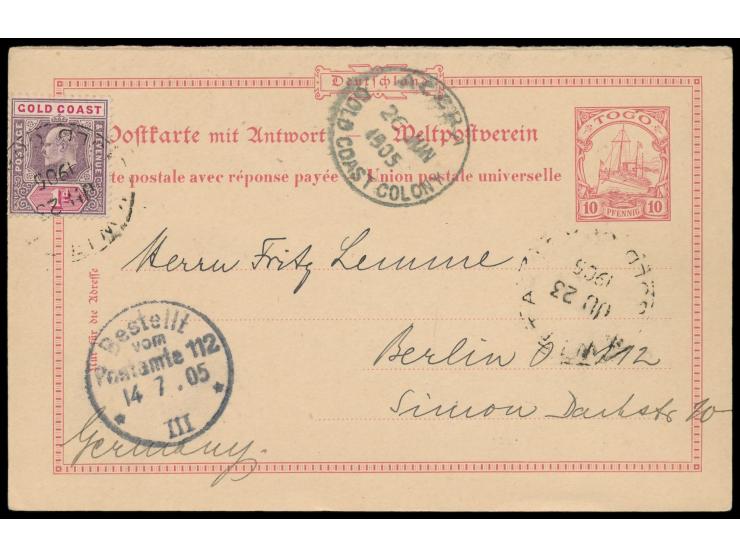 Deutschland
GOLD COAST
POSTAGE
REVENUE
1d
Postkarte mit Antwort — Weltpostverein
te postale avec réponse payée — Union postale universelle
TOGO
10 PFENNIG 10
ACCRA
26 JUN
1905
GOLD COAST COLONY
JU 23
1905
Nur für die Adresse
Herrn Fritz Lemme
Berlin O 112
Bestellt
vom
Postamte 112
14 7. 05
* III *
Germany.